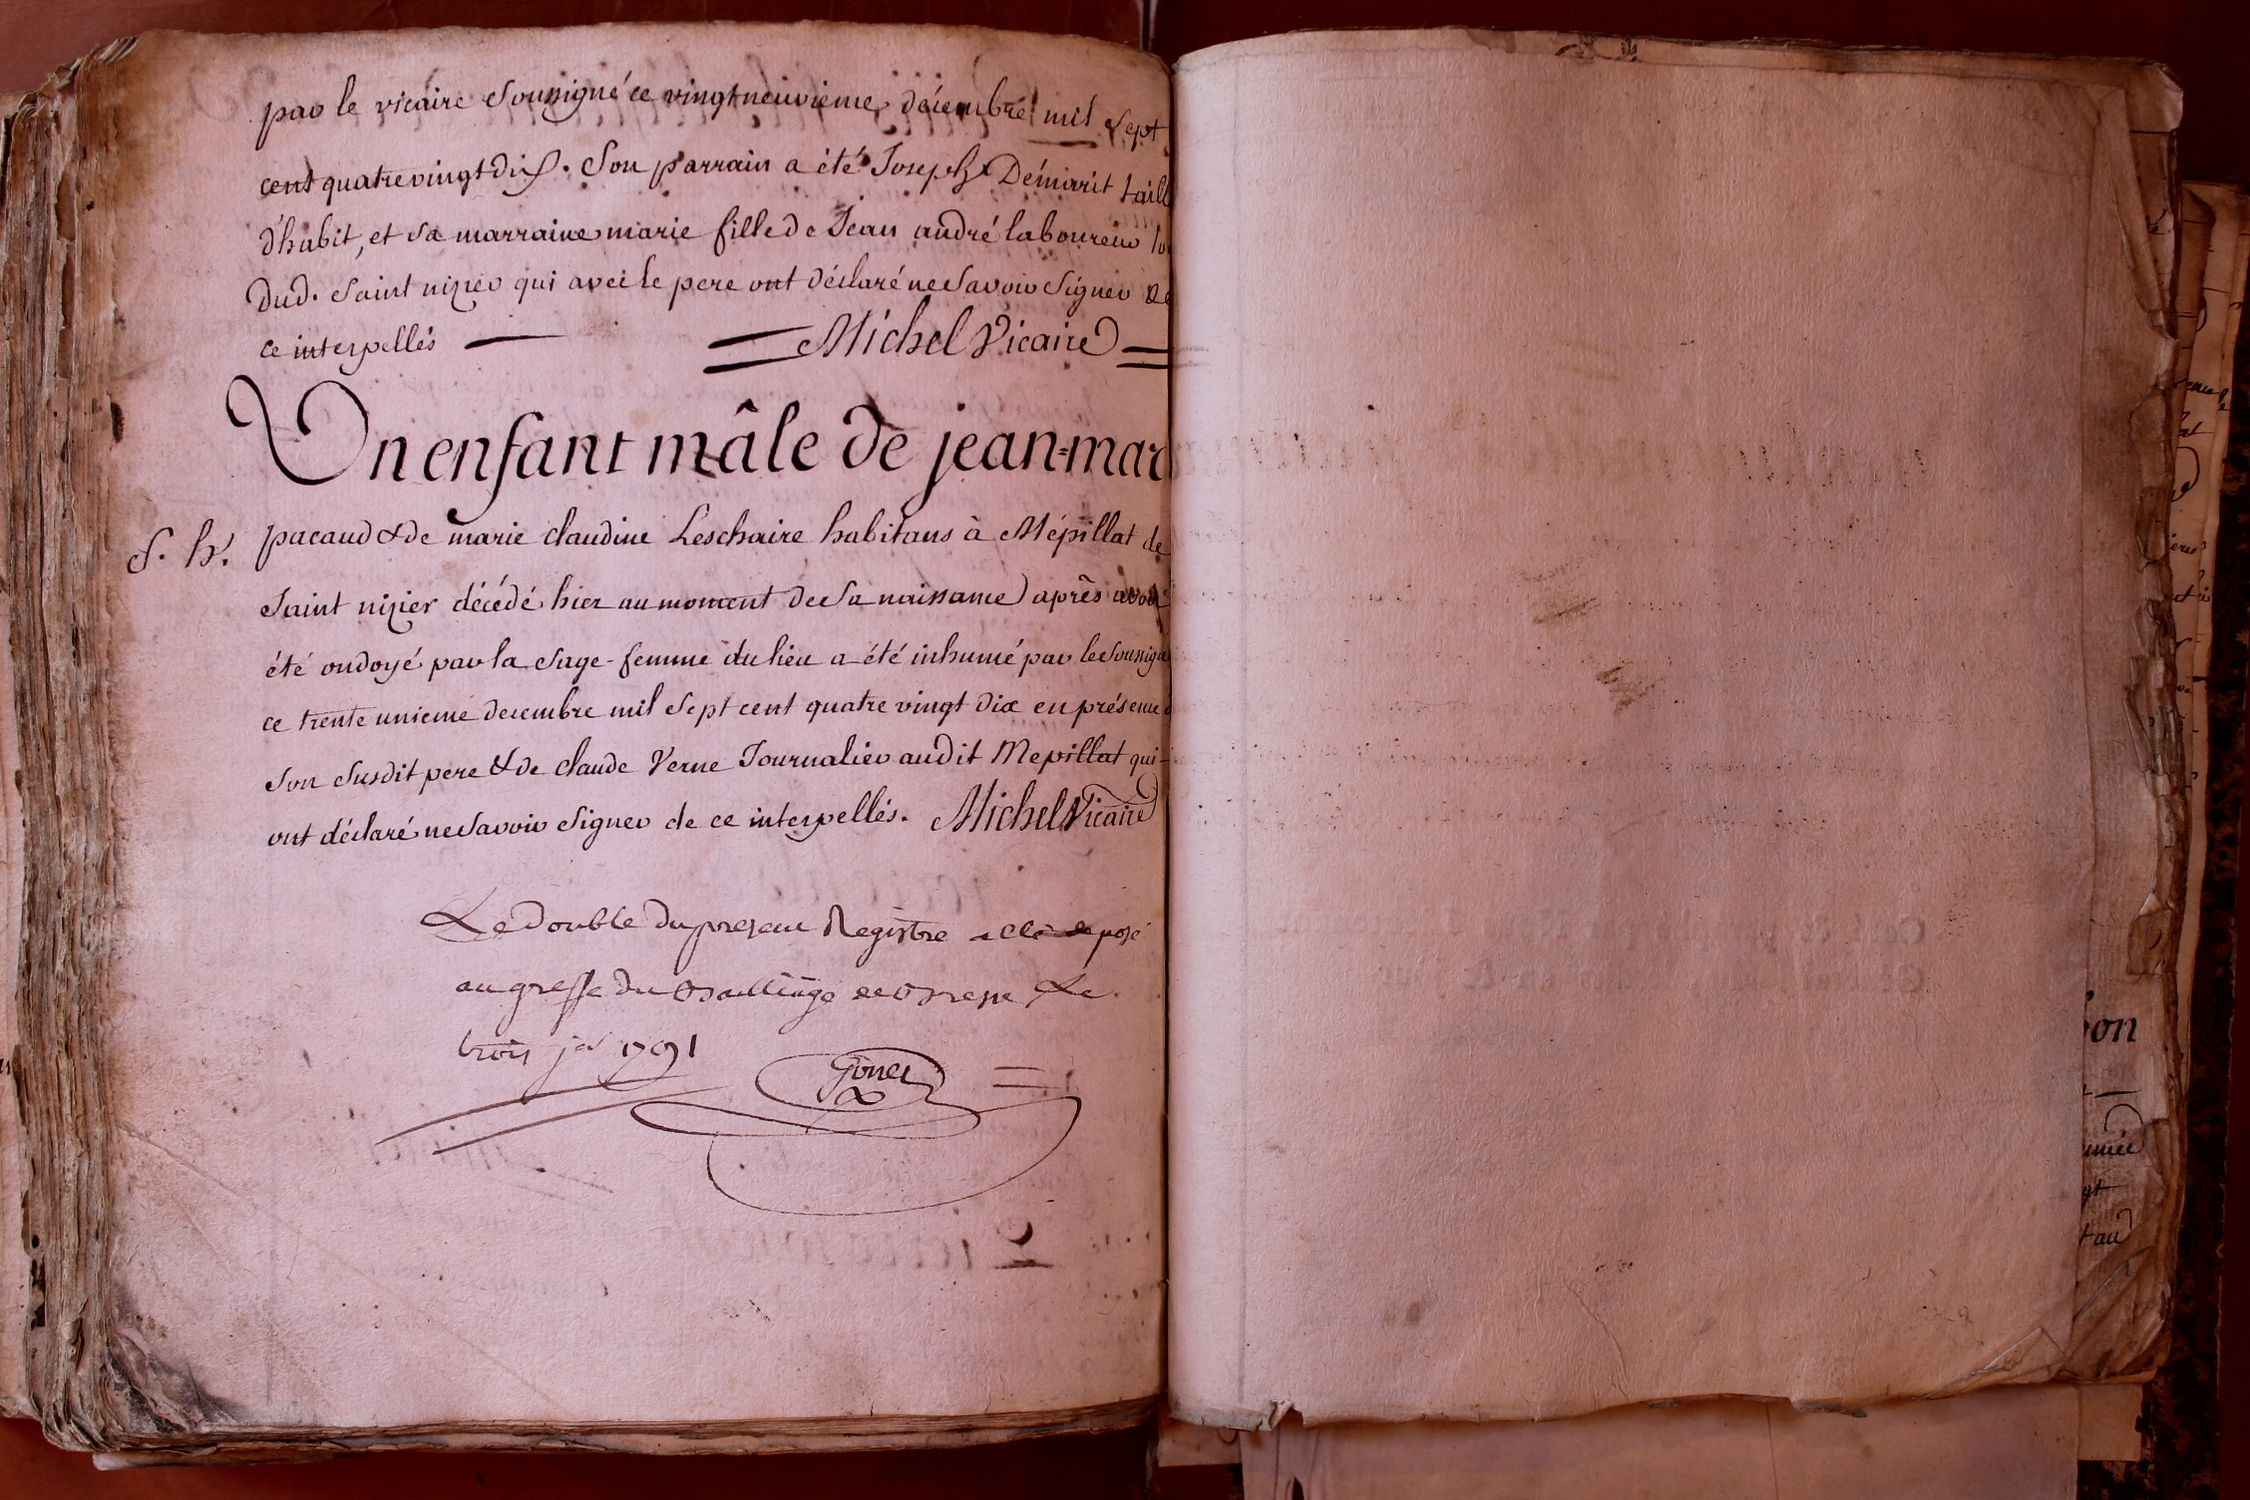 par le vicaire soussigné ce vingtneuvieme décembre mil sept
cent quatrevingt dix. Son parrain a été Joseph Démarit taill
d'habit, et sa marraine marie fille de Jean andré laboureur
dud. saint nizier qui avec le pere ont déclaré ne savoir signer de
ce interpellés Michel Vicaire
Un enfant mâle de jean=mar
S. h. pacaud & de marie claudine Leschaire habitans à Mépillat de
saint nizier décédé hier au moment de sa naissance après avoir
été ondoyé par la sage-femme du lieu a été inhumé par le soussigné
ce trente unieme decembre mil sept cent quatre vingt dix en présence
son susdit pere & de claude Verne Journalier audit Mepillat qui
ont déclaré ne savoir signer de ce interpellés. Michel Vicaire
Le double du present Registre a été deposé
au greffe du Bailliage de Bresse Le
trois jer 1791
on